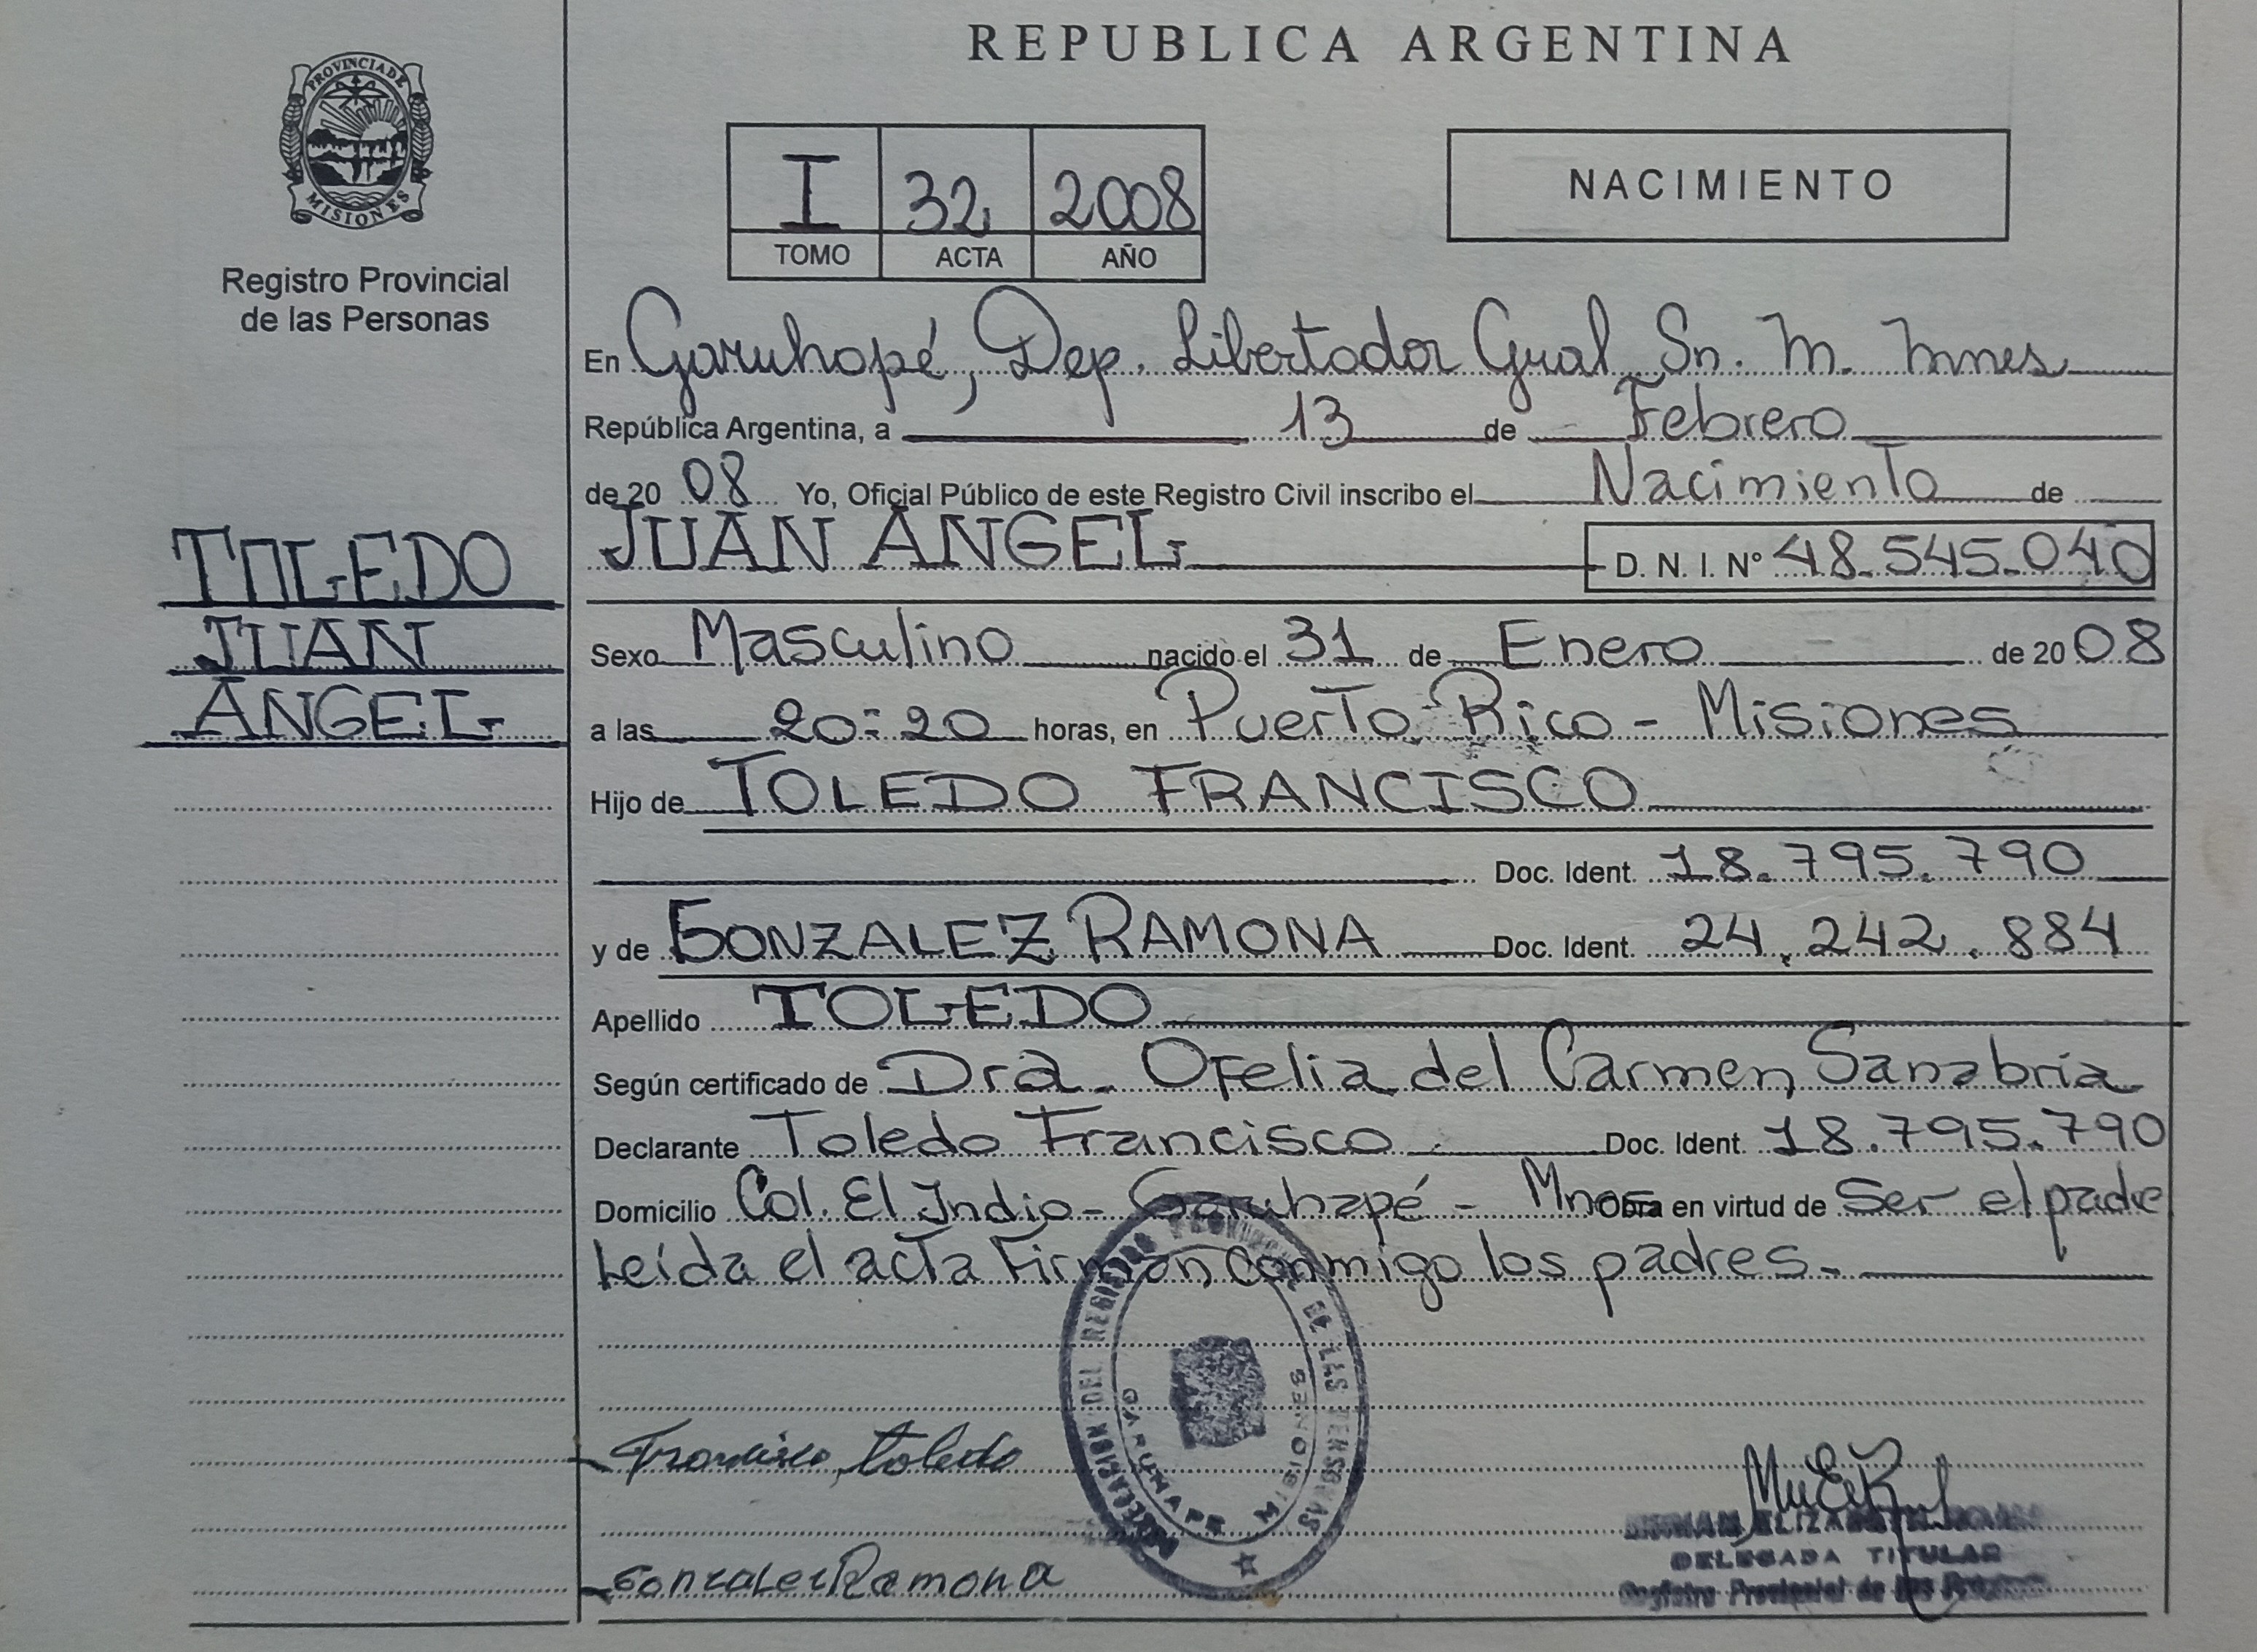 REPUBLICA ARGENTINA
PROVINCIA DE
MISIONES
Registro Provincial
de las Personas
I 32 2008
TOMO ACTA AÑO
NACIMIENTO
En Garuhapé, Dep. Libertador Gral Sn. M. Mnes
República Argentina, a 13 de Febrero
de 20 08 Yo, Oficial Público de este Registro Civil inscribo el Nacimiento de
JUAN ANGEL D. N. I. Nº 48.545.040
TOLEDO
JUAN
ANGEL
Sexo Masculino nacido el 31 de Enero de 20 08
a las 20:20 horas, en Puerto Rico - Misiones
Hijo de TOLEDO FRANCISCO
Doc. Ident. 18.795.790
y de GONZALEZ RAMONA Doc. Ident. 24.242.884
Apellido TOLEDO
Según certificado de Dra. Ofelia del Carmen Sanabria
Declarante Toledo Francisco Doc. Ident. 18.795.790
Domicilio Col. El Indio - Garuhapé - Mnes Obra en virtud de Ser el padre
Leída el acta Firman conmigo los padres.
DELEGACION DEL REGISTRO PROVINCIAL DE LAS PERSONAS
GARUHAPE MISIONES
Francisco Toledo
Gonzalez Ramona
ELIZABETH
DELEGADA TITULAR
Registro Provincial de las Personas